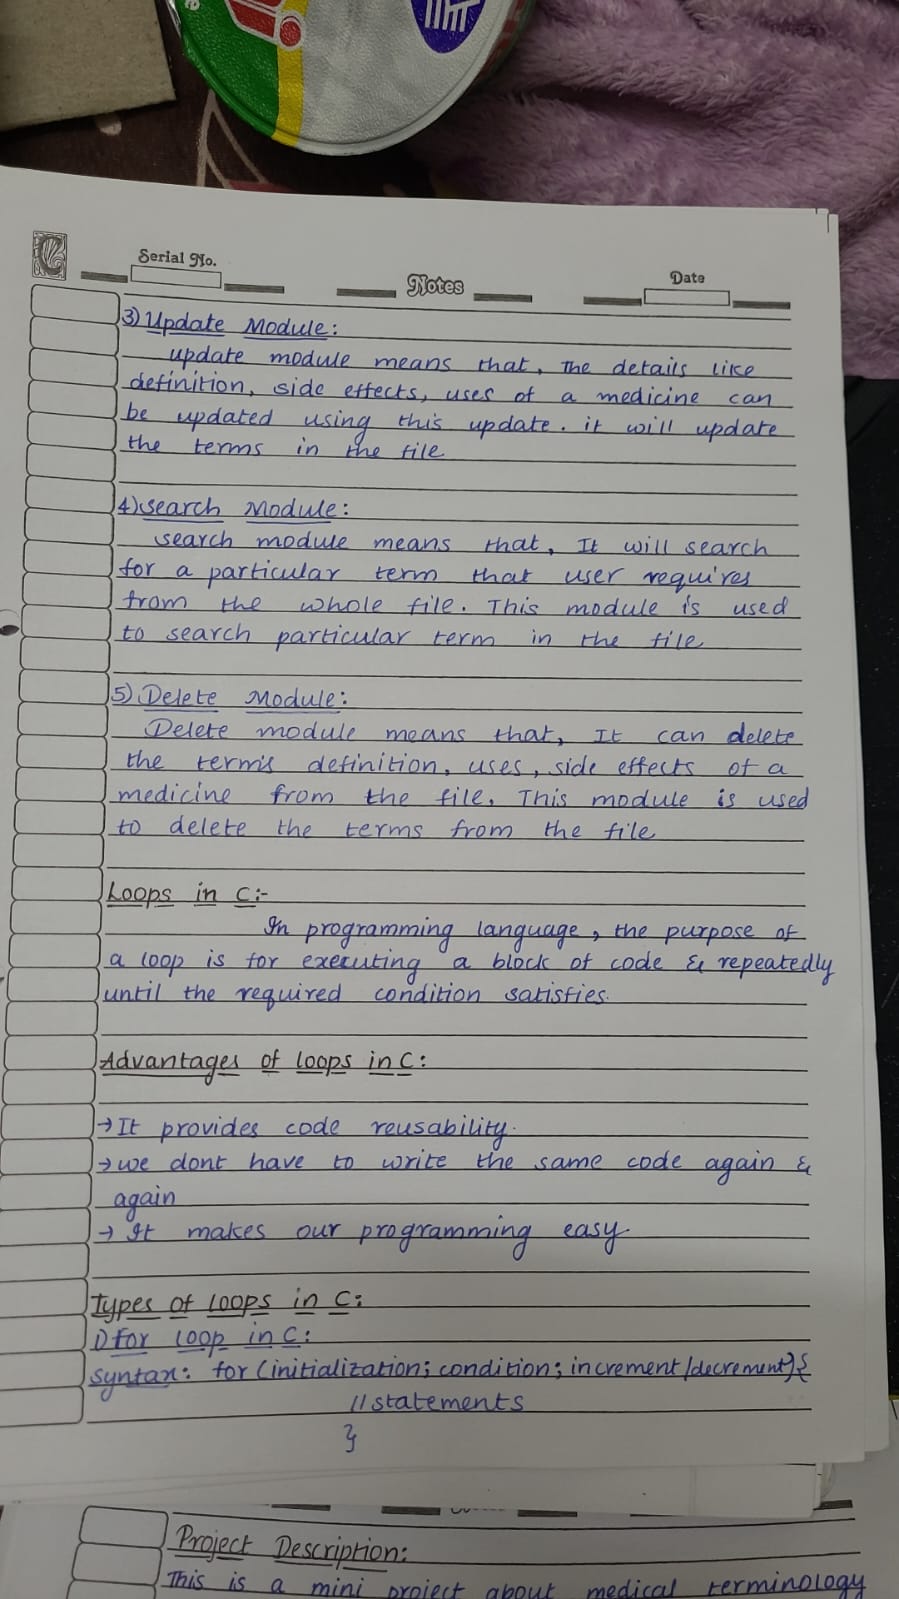 Serial No.
Notes
Date
3) Update Module:
update module means that, The details like
definition, side effects, uses of a medicine can
be updated using this update. it will update
the terms in the file
4) search Module:
search module means that, It will search
for a particular term that user requires
from the whole file. This module is used
to search particular term in the file
5) Delete Module:
Delete module means that, It can delete
the term's definition, uses, side effects of a
medicine from the file. This module is used
to delete the terms from the file
Loops in C:-
In programming language, the purpose of
a loop is for executing a block of code & repeatedly
until the required condition satisfies.
Advantages of loops in C:
→ It provides code reusability.
→ we dont have to write the same code again &
again
→ It makes our programming easy.
Types of loops in C:
1) for loop in C:
syntax: for (initialization; condition; increment/decrement){
// statements
}
Project Description:
This is a mini project about medical terminology